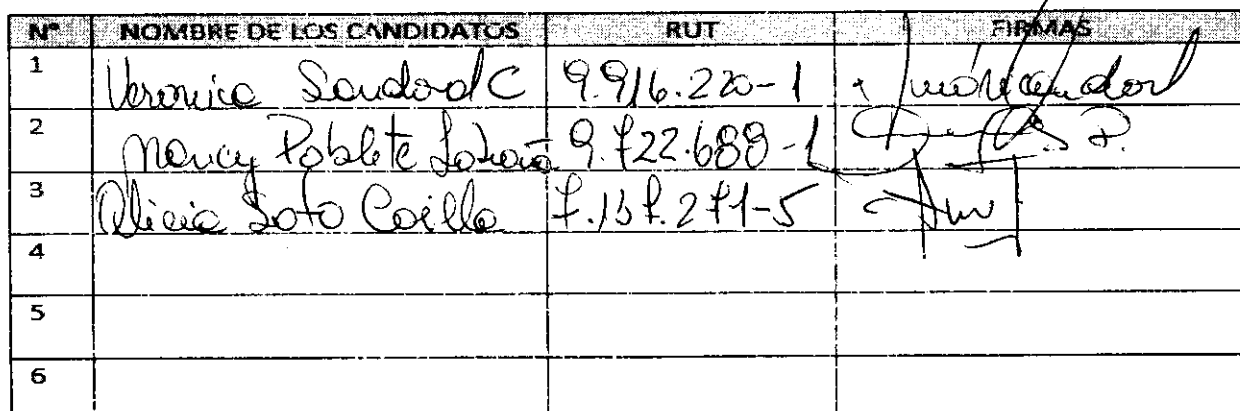 N° NOMBRE DE LOS CANDIDATOS RUT FIRMAS
1 Veronica Sandoval C 9.916.220-1
2 Nancy Poblete 9.722.688-1
3 Alicia Soto Coillo 7.157.271-5
4
5
6